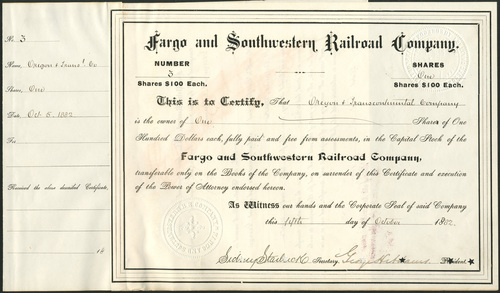 No. 3
Name, Oregon & Transl. Co
Shares, One
Date, Oct 5, 1882
To
Received the above described Certificate,
18
Fargo and Southwestern Railroad Company.
NUMBER
3
Shares $100 Each.
SHARES
One
Shares $100 Each.
This is to Certify, That Oregon & Transcontinental Company
is the owner of One Shares of One
Hundred Dollars each, fully paid and free from assessments, in the Capital Stock of the
Fargo and Southwestern Railroad Company,
transferable only on the Books of the Company, on surrender of this Certificate and execution
of the Power of Attorney endorsed hereon.
As Witness our hands and the Corporate Seal of said Company
this fifth day of October 1882.
Secretary. President.